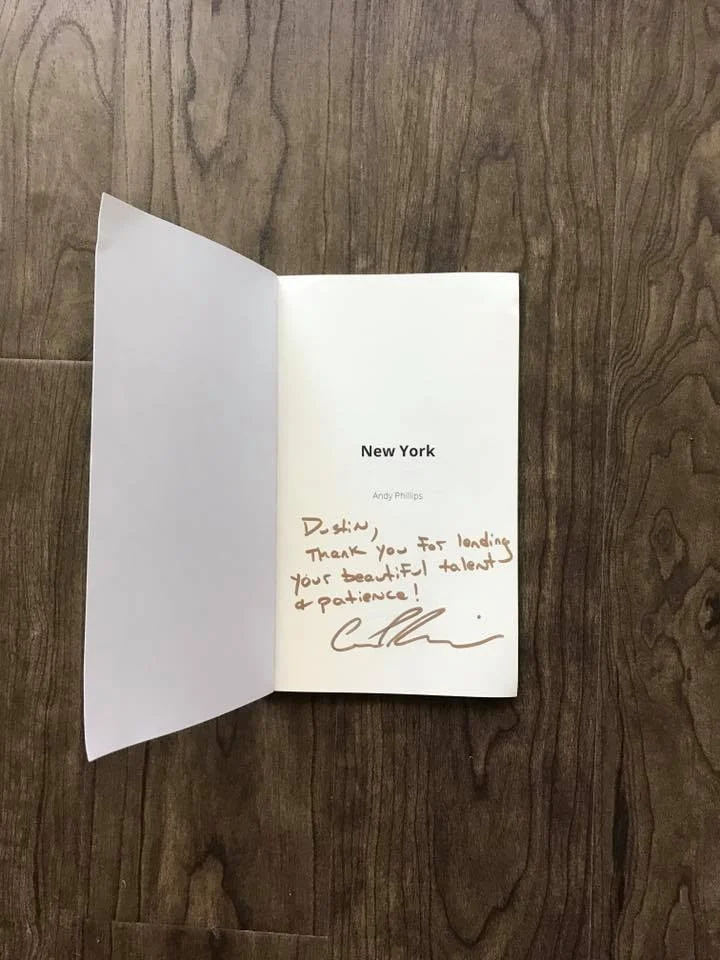 New York
Andy Phillips
Dustin,
Thank you for lending
your beautiful talent
& patience!